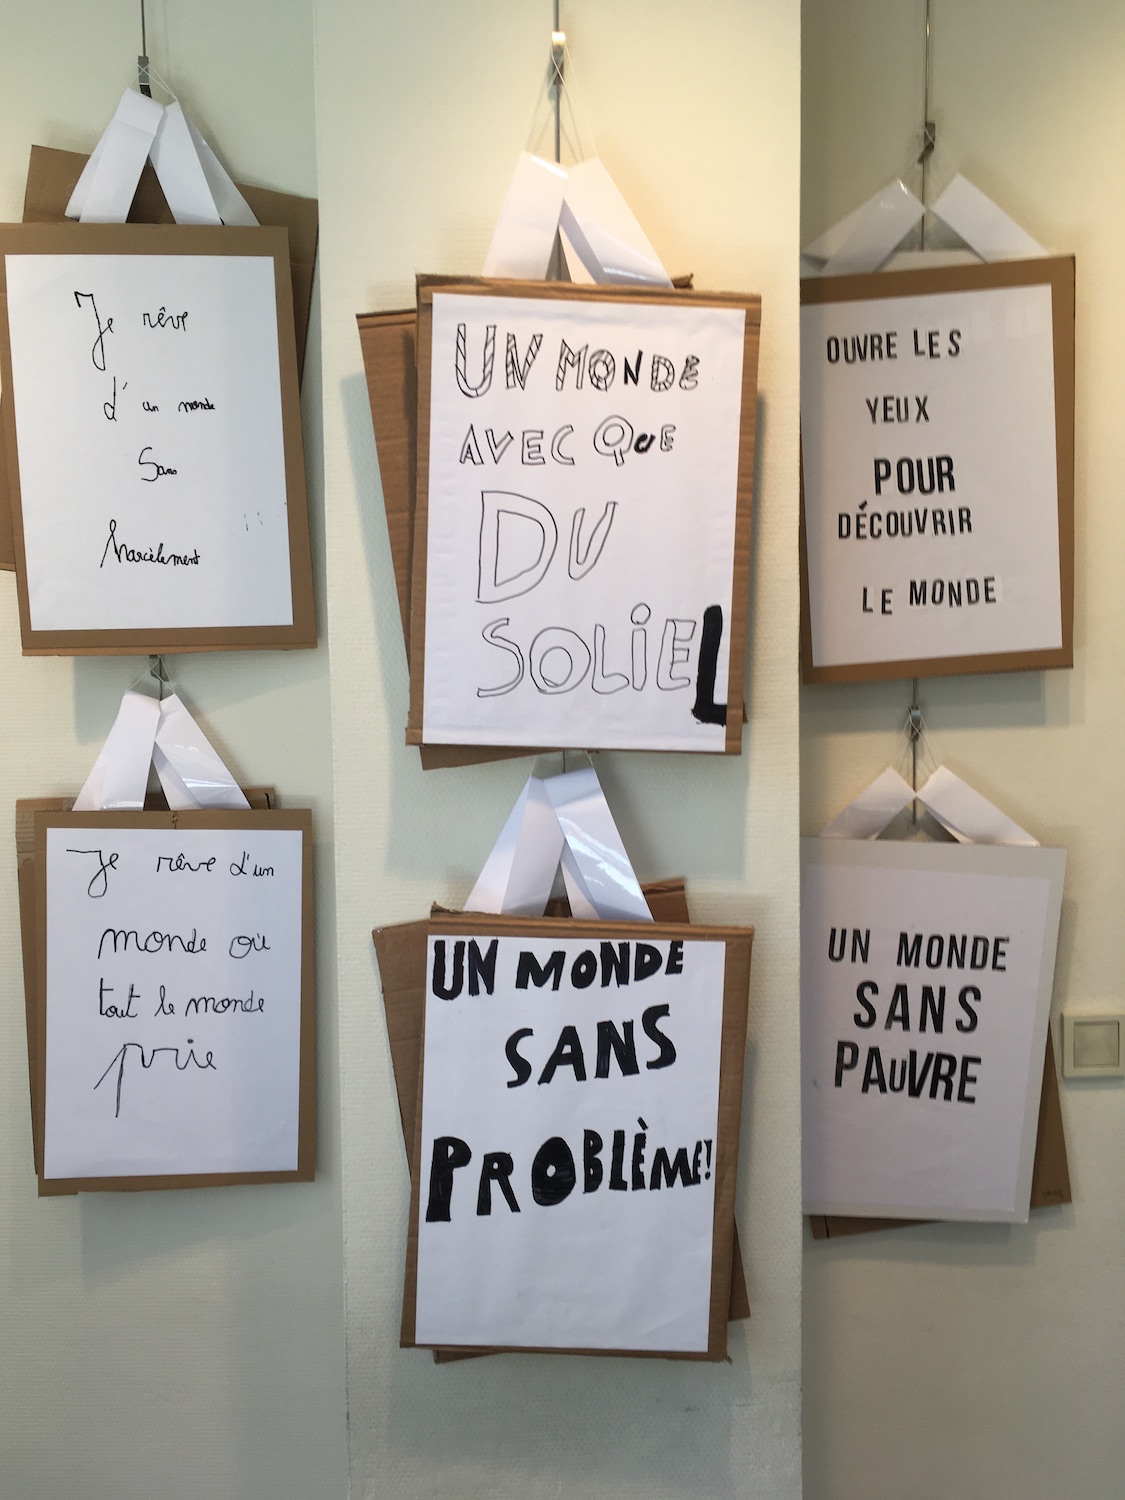 Je rêve
d'un monde
Sans
Harcèlement
Je rêve d'un
monde où
tout le monde
prie
UN MONDE
AVEC QUE
DU
SOLIEL
UN MONDE
SANS
PROBLÈME!
OUVRE LES
YEUX
POUR
DÉCOUVRIR
LE MONDE
UN MONDE
SANS
PAuVRE